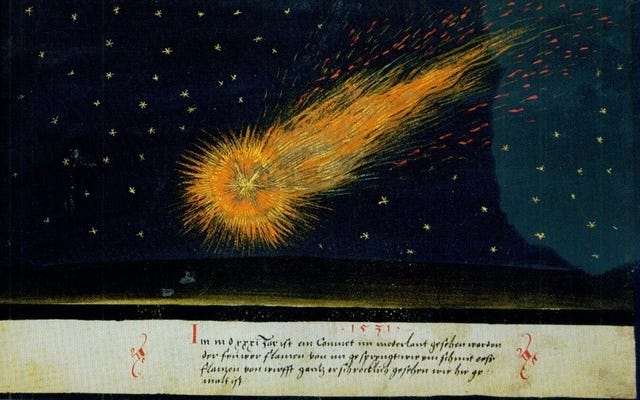 · 1531 ·
Im m d xxxi Jar ist ein Commet im niderlant gesehen worden
der feuwer flamen von im gesprengt wie ein schmit esse
flamen von wirfft gantz erschrocklich gesehen wie hie ge
malt ist